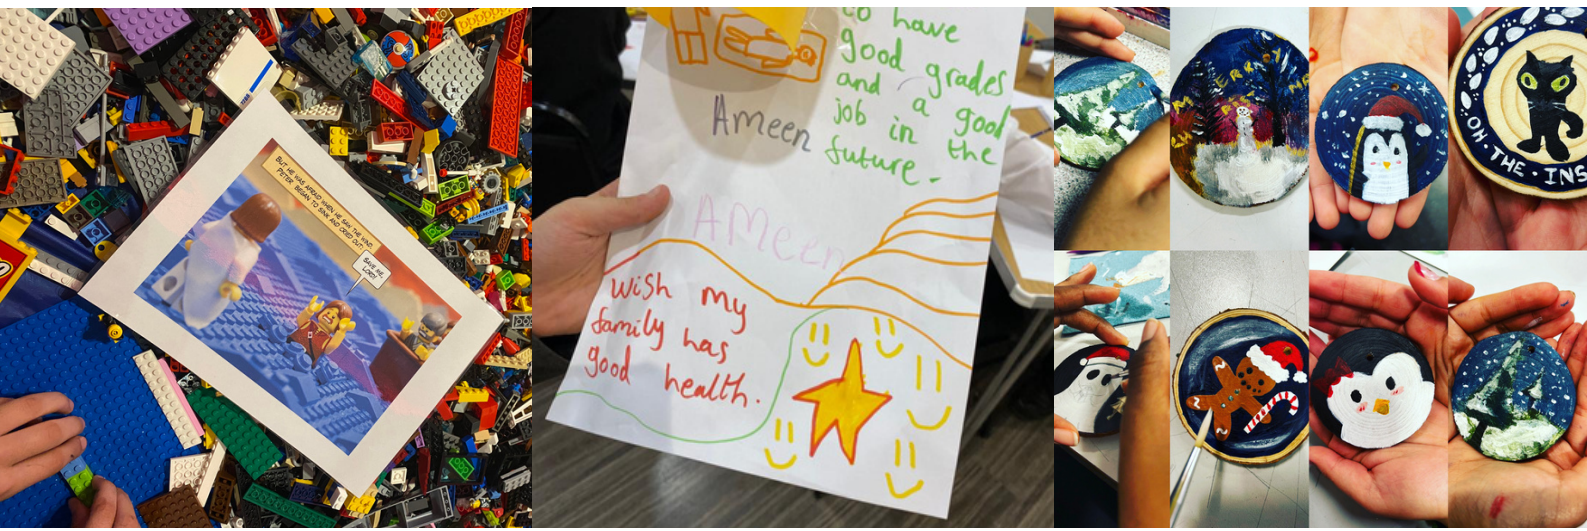 BUT HE WAS AFRAID WHEN HE SAW THE WIND.
PETER BEGAN TO SINK AND CRIED OUT:
SAVE ME,
LORD!
to have
good grades
and a good
job in the
future.
Ameen
AMeen
wish my
family has
good health.
MERRY
OH • THE • INS